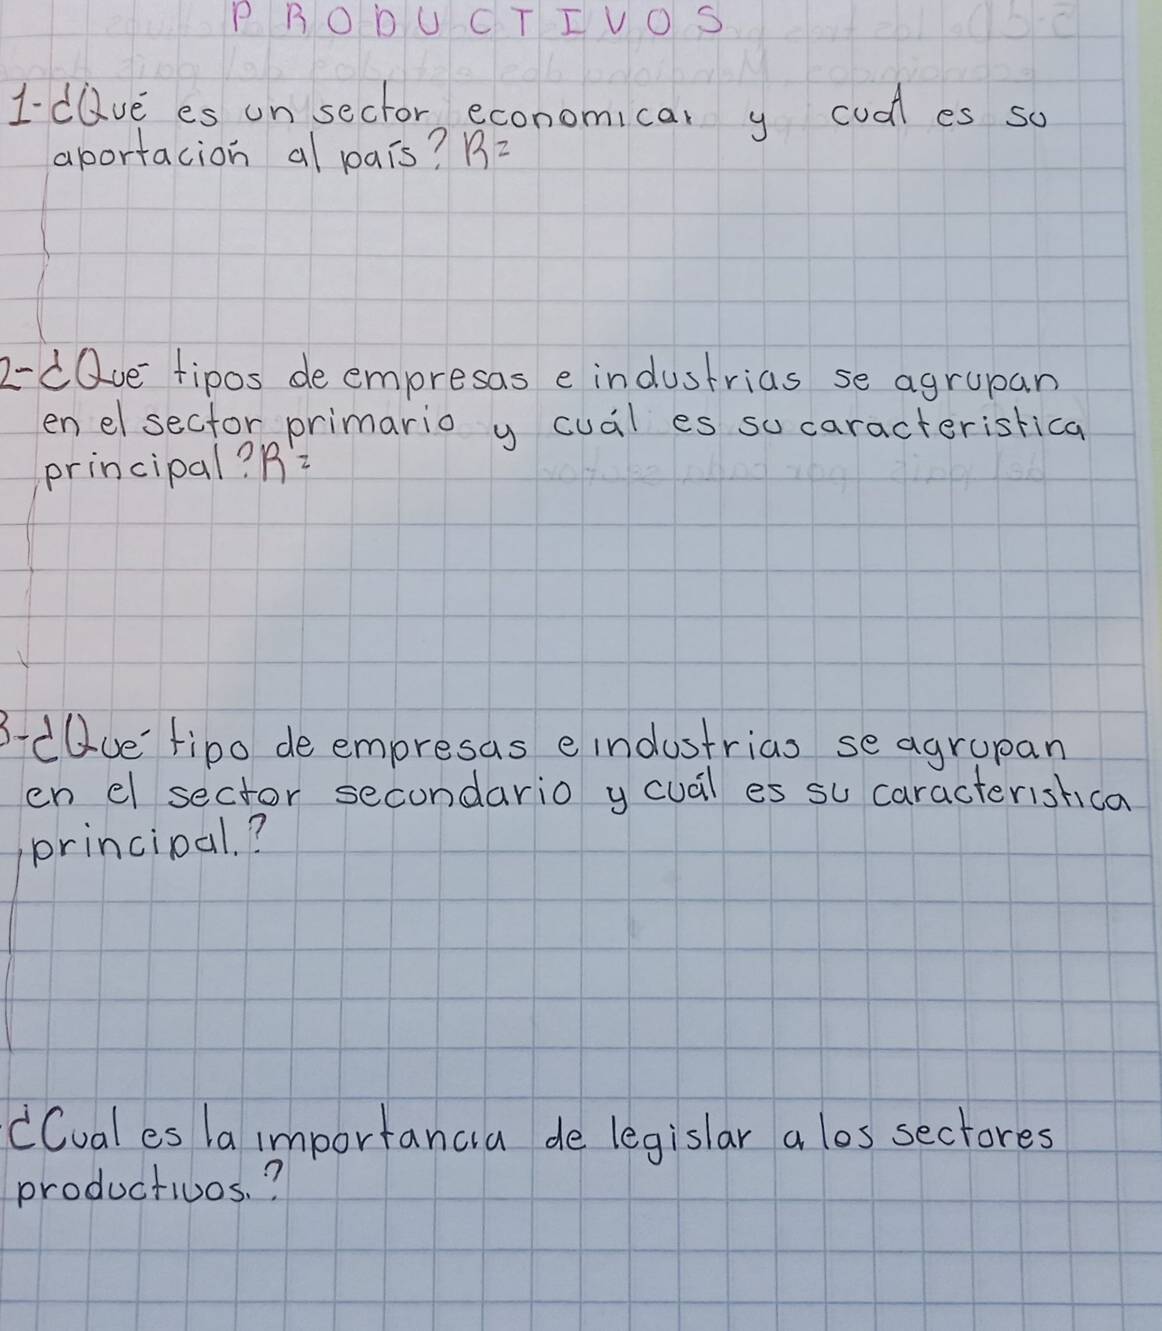 PRODUCTIVOS
1-¿Qué es un sector economica y cuál es su
aportación al país? R=
2-¿Qué tipos de empresas e industrias se agrupan
en el sector primario y cuál es su caracteristica
principal? R=
3-¿Qué tipo de empresas e industrias se agrupan
en el sector secundario y cuál es su caracteristica
principal.?
¿Cual es la importancia de legislar a los sectores
productivos.?